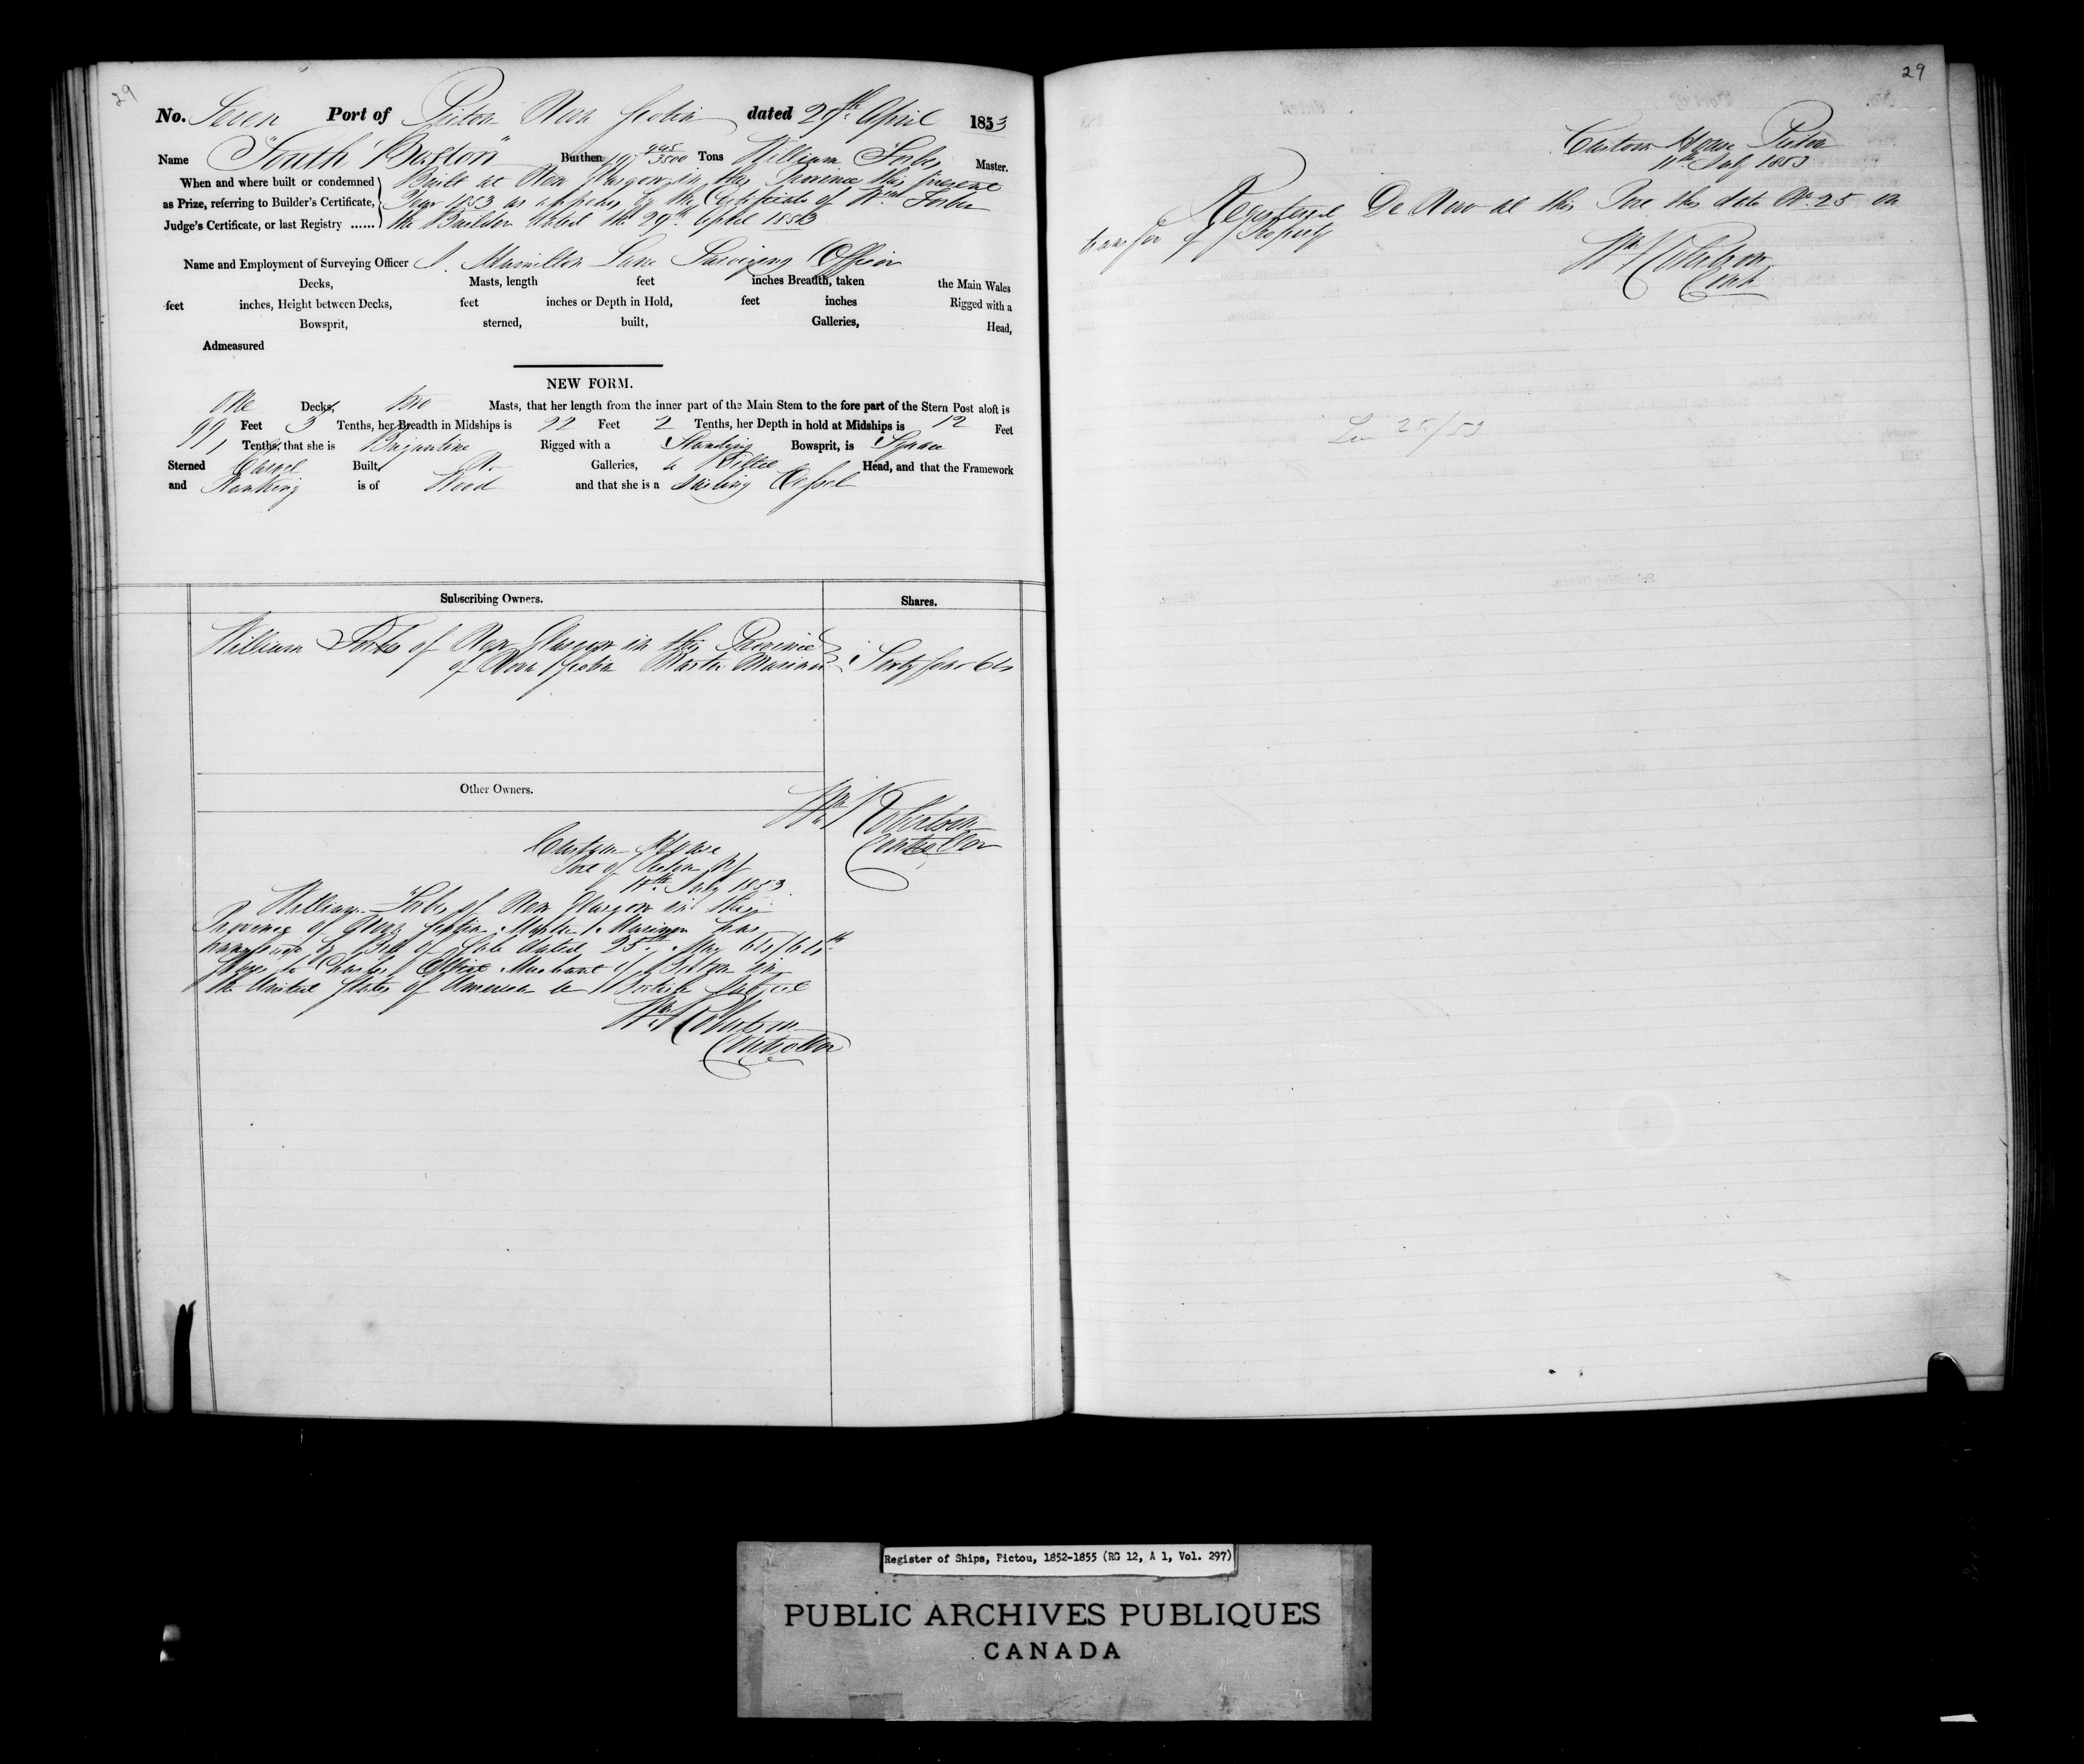 29
No. Seven Port of Pictou Nova Scotia dated 29th April 1853
Name "South Boston" Burthen 197 995/3500 Tons William Forbes Master.
When and where built or condemned Built at New Glasgow in this Province this present
as Prize, referring to Builder's Certificate, Year 1853 as appears by the Certificate of Wm Forbes
Judge's Certificate, or last Registry ...... the Builder dated the 29th April 1853
Name and Employment of Surveying Officer J. Hamilton Lane Surveying Officer
Decks, Masts, length feet inches Breadth, taken the Main Wales
feet inches, Height between Decks, feet inches or Depth in Hold, feet inches Rigged with a
Bowsprit, sterned, built, Galleries, Head,
Admeasured
NEW FORM.
One Decks, two Masts, that her length from the inner part of the Main Stem to the fore part of the Stern Post aloft is
99 Feet 3 Tenths, her Breadth in Midships is 22 Feet 2 Tenths, her Depth in hold at Midships is 12 Feet
1 Tenths, that she is Brigantine Rigged with a Standing Bowsprit, is Square
Sterned Carvel Built, No Galleries, a Billet Head, and that the Framework
and Planking is of Wood and that she is a Sailing Vessel
Subscribing Owners. Shares.
William Forbes of New Glasgow in this Province
of Nova Scotia Master Mariner Sixty four 64
Other Owners.
Wm Robertson
Controller
Custom House
Port of Pictou NS
11th July 1853
William Forbes of New Glasgow in this
Province of Nova Scotia Master Mariner has
transferred by Bill of Sale dated 25th May 64/64th
Shares to Charles Merchant of Boston in
the United States of America a British Subject
Wm Robertson
Controller
29
Custom House Pictou
11th July 1853
Registered De Novo at this Port this date No. 25 on
transfer of Property
Wm Robertson
Cont.
25/53
Register of Ships, Pictou, 1852-1855 (RG 12, A 1, Vol. 297)
PUBLIC ARCHIVES PUBLIQUES
CANADA